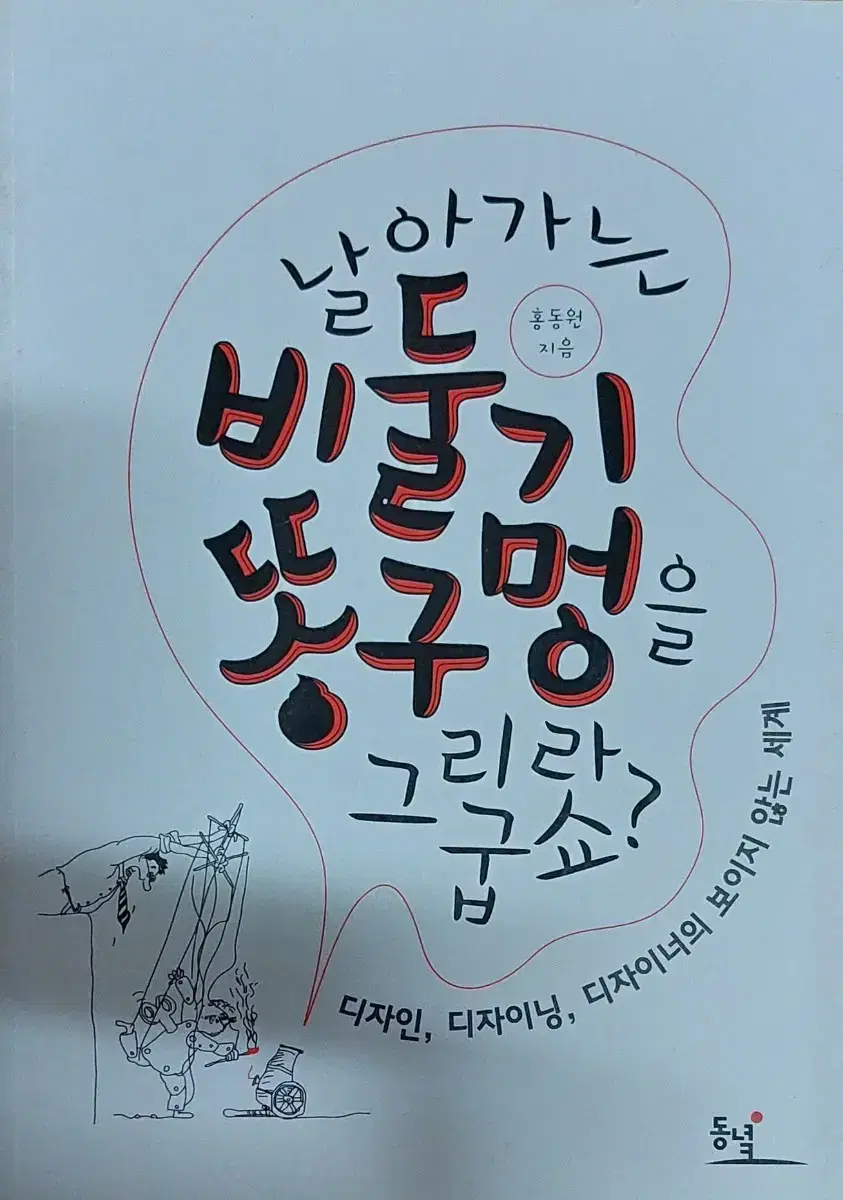 날아가는
비둘기
똥구멍을
그리라
굽쇼?
홍동원
지음
디자인, 디자이닝, 디자이너의 보이지 않는 세계
동녘